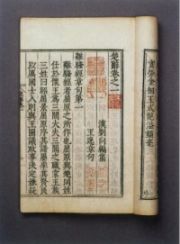 金相玉式艷溢錙毫
楚辭卷之一
漢劉向編集
王逸章句
離騷經章句第一
離騷經者屈原之所作也屈原與楚同姓
仕於懷王爲三閭大夫三閭之職掌王族
三姓曰昭屈景屈原序其譜屬率其賢良
以厲國士入則與王圖議政事決定嫌疑